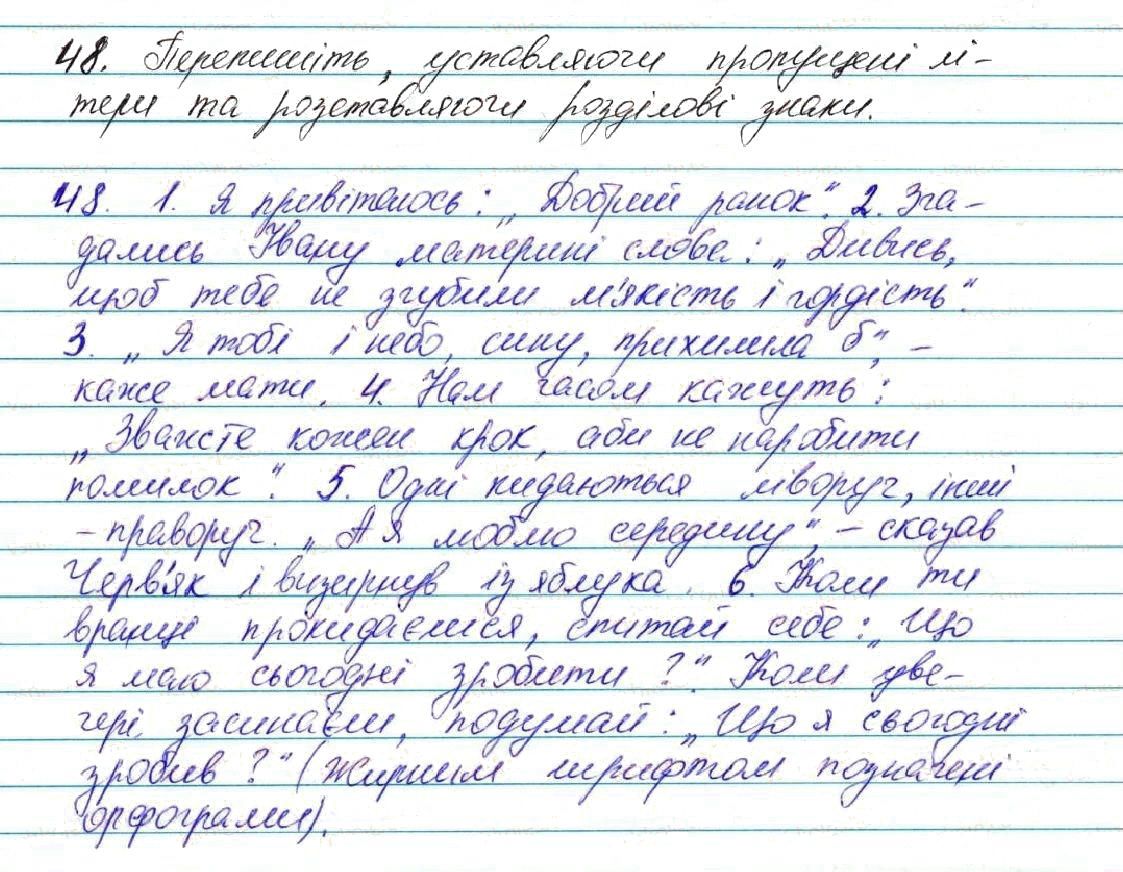 48. Перепишіть, уставляючи пропущені лі-
тери та розставлягочи розділові знаки.
48. 1. Я привіталось: „Добрий ранок". 2. Зга-
дались Івану материні слова: „Дивись,
щоб тебе не згубили м'якість і гордість".
3. „Я тобі і небо, сину, прихилила б", -
каже мати. 4. Нам часом кажуть:
„Зважте кожен крок, аби не наробити
помилок". 5. Одні кидаються ліворуч, інші
- праворуч. „А я люблю середину", - сказав
Черв'як і визирнув із яблука. 6. Коли ти
вранці прокидаєшся, спитай себе: „Що
я маю сьогодні зробити?". Коли уве-
чері засинаєш, подумай: „Що я сьогодні
зробив?" (Жирним шрифтом позначені
орфограми).